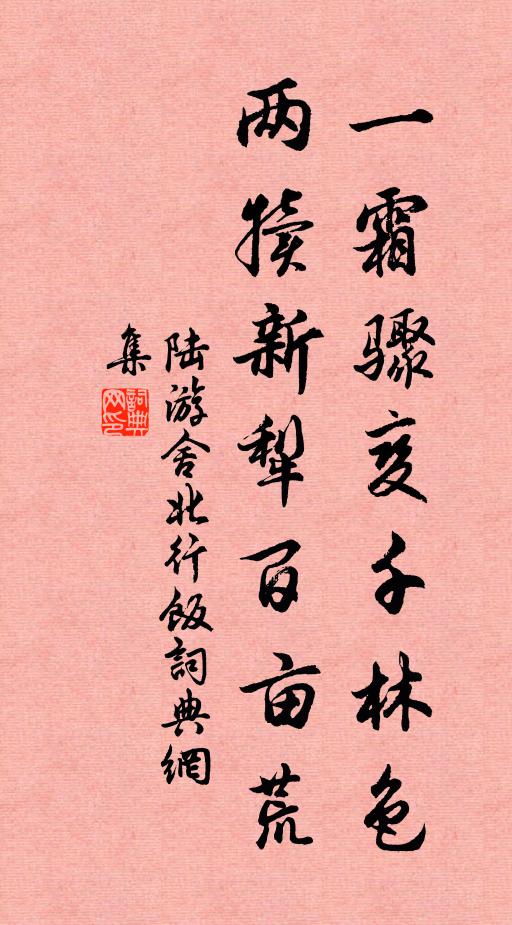 一霜骤变千林色
两犊新犁百亩荒
陆游舍北行饭詞典網
集
詞典网印